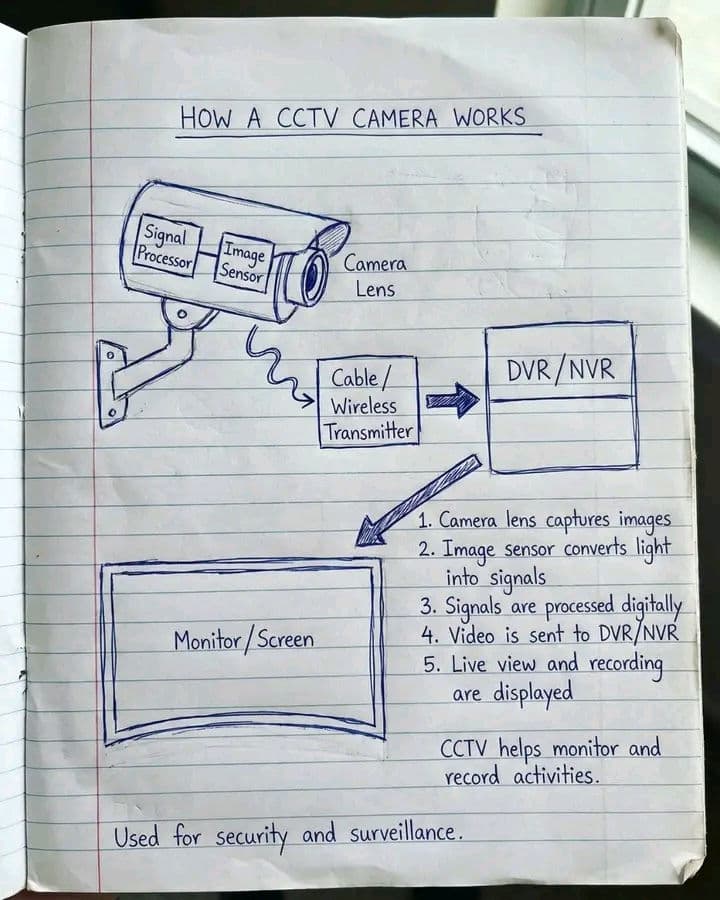 HOW A CCTV CAMERA WORKS
Signal
Processor
Image
Sensor
Camera
Lens
Cable/
Wireless
Transmitter
DVR/NVR
1. Camera lens captures images
2. Image sensor converts light
into signals
3. Signals are processed digitally
4. Video is sent to DVR/NVR
5. Live view and recording
are displayed
Monitor/Screen
CCTV helps monitor and
record activities.
Used for security and surveillance.